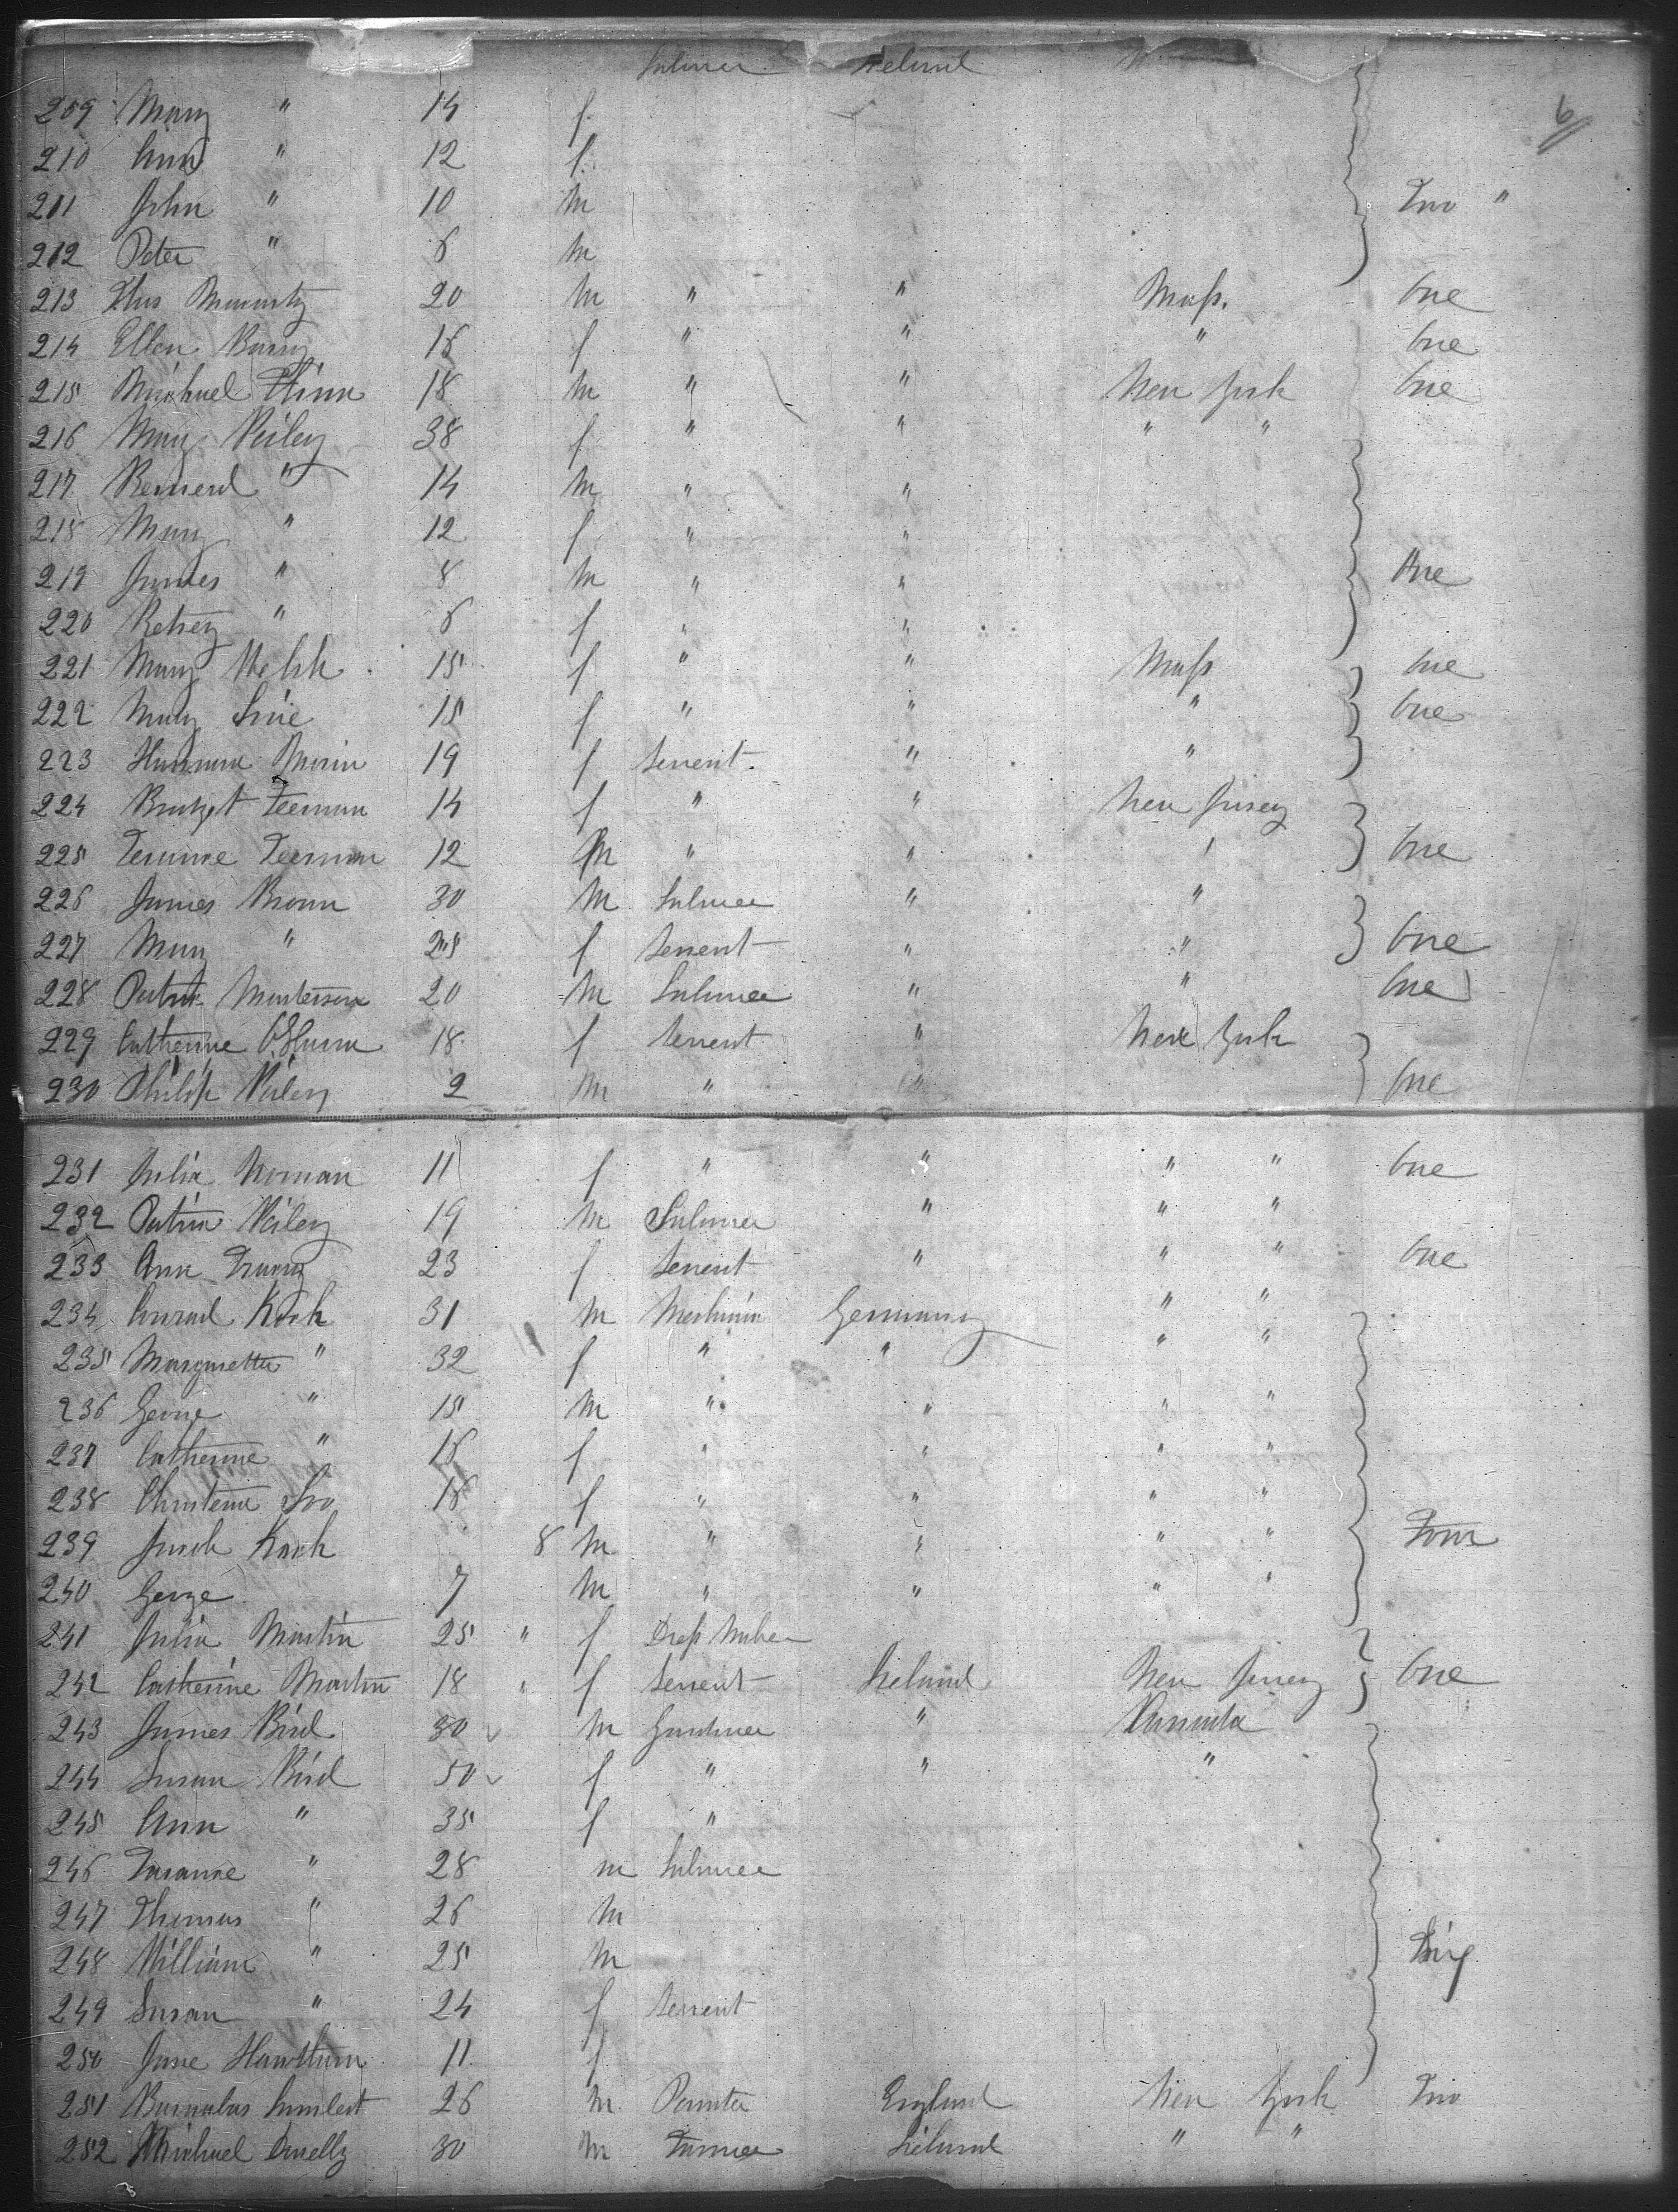 Labourer Ireland
6
209 Mary " 14 f
210 Ann " 12 f
211 John " 10 m Two "
212 Peter " 6 m
213 Thos Moriarty 20 m " " Mass. One
214 Ellen Barry 16 f " " " One
215 Michael Flinn 18 m " " New York One
216 Mary Reiley 38 f " " " "
217 Bernerd " 14 m " "
218 Mary " 12 f " "
219 James " 8 m " " One
220 Betsey " 6 f " "
221 Mary Welsh 15 f " " Mass One
222 Mary 15 f " " " One
223 Hannara Morin 19 f Servent " "
224 Bridget Teernan 14 f " " New Jersey
225 Teernan 12 m " " " One
226 James Brown 30 m Labourer " "
227 Mary " 25 f Servent " " One
228 Patrick Masterson 20 m Labourer " " One
229 Catherine 18 f Servent " New York
230 Philip Reiley 2 m " " One
231 Julia Noonan 11 f " " " " One
232 Patrick Reiley 19 m Labourer " " "
233 Ann 23 f Servent " " " One
234 Conrad Koch 31 m Mechinic Germany " "
235 Margaretta " 32 f " " " "
236 George " 15 m " " " "
237 Catherine " 16 f " " " "
238 Christena 16 f " " " "
239 Koch 8 m " " " " Four
240 George 7 m " " " "
241 Julia Martin 25 " f Dress Maker
242 Catherine Martin 18 " f Servent Ireland New Jersey One
243 James Bird 30 m Gardner " Cannada
244 Susan Bird 50 f " " "
245 Ann " 35 f "
246 " 28 m Labourer
247 Thomas " 26 m
248 William " 25 m
249 Susan " 24 f Servent
250 Jane Hawthorn 11 f
251 Barnabas 26 m Painter England New York Two
252 Michael 30 m Farmer Ireland " "